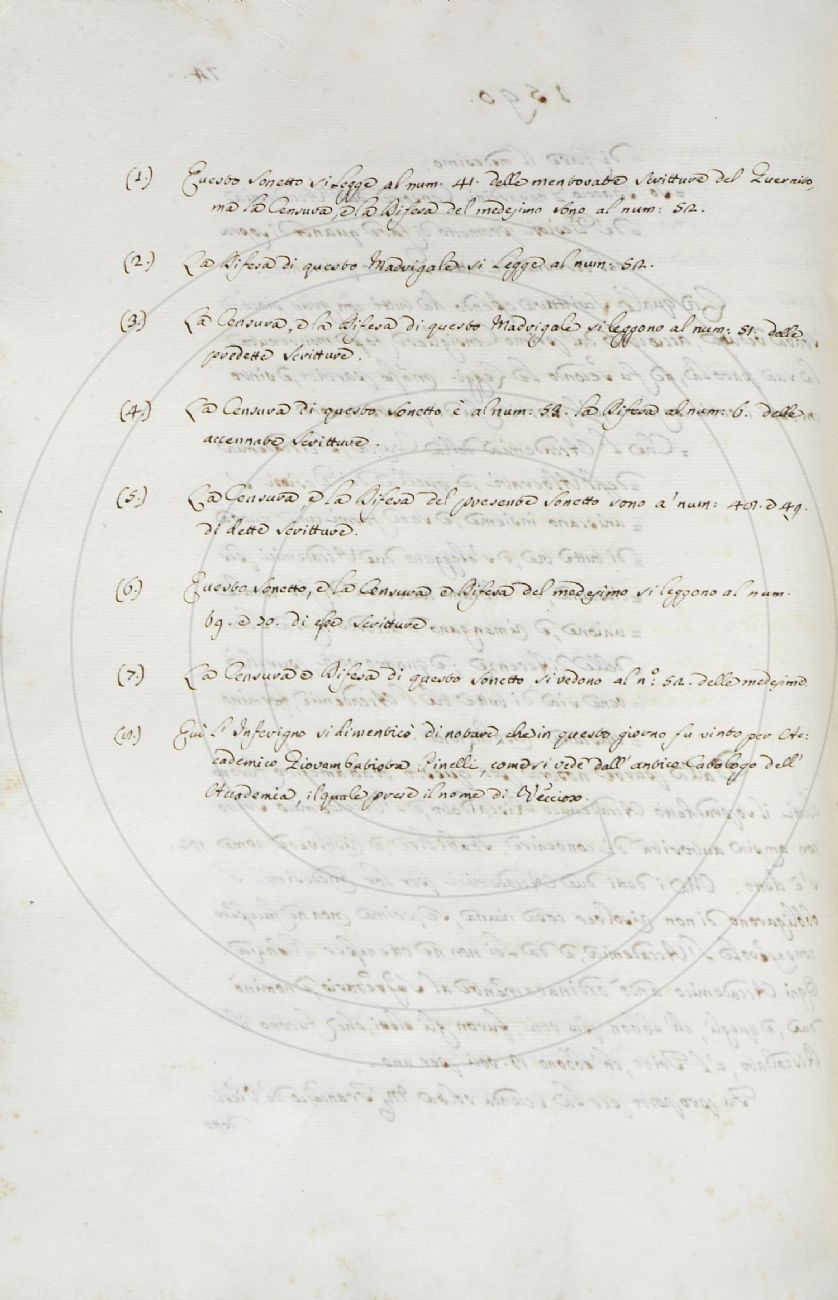 (1.) Questo Sonetto si legge al num. 41. delle mentovate Scritture del Guernito,
ma la Censura, e la Difesa del medesimo sono al num: 52.
(2.) La Difesa di questo Madrigale si legge al num: 52.
(3.) La Censura, e la Difesa di questo Madrigale si leggono al num: 51. dalle
predette Scritture.
(4.) La Censura di questo Sonetto è al num: 52. la Difesa al num: 6. delle
accennate Scritture.
(5.) La Censura, e la Difesa del presente Sonetto sono a' num: 48. e 49.
di dette Scritture.
(6.) Questo Sonetto, e la Censura e Difesa del medesimo si leggono al num.
69. e 70. di esse Scritture.
(7.) La Censura e Difesa di questo Sonetto si vedono al n.º 52. delle medesime.
(8.) Qui l'Inferigno si dimenticò di notare, che in questo giorno fu vinto per Ac:
cademico Giovambatista Pinelli, come si vede dall'antico Catalogo dell'
Accademia, il quale prese il nome di
1590.
74.